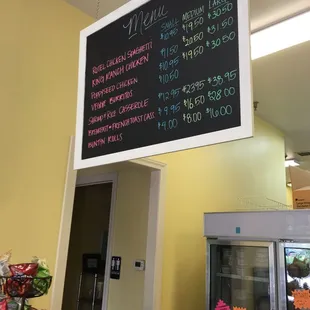 Menu
SMALL MEDIUM LARGE
ROTEL CHICKEN SPAGHETTI $10.50 $19.50 $30.50
KING RANCH CHICKEN $11.50 $20.50 $31.50
POPPYSEED CHICKEN $10.95 $19.50 $30.50
VENNIE BURRITOS $10.50
SHRIMP + RICE CASSEROLE $12.95 $23.95 $38.95
BREAKFAST - FRENCH TOAST CASS $9.95 $16.50 $28.00
HUNTIN ROLLS $4.00 $8.00 $16.00